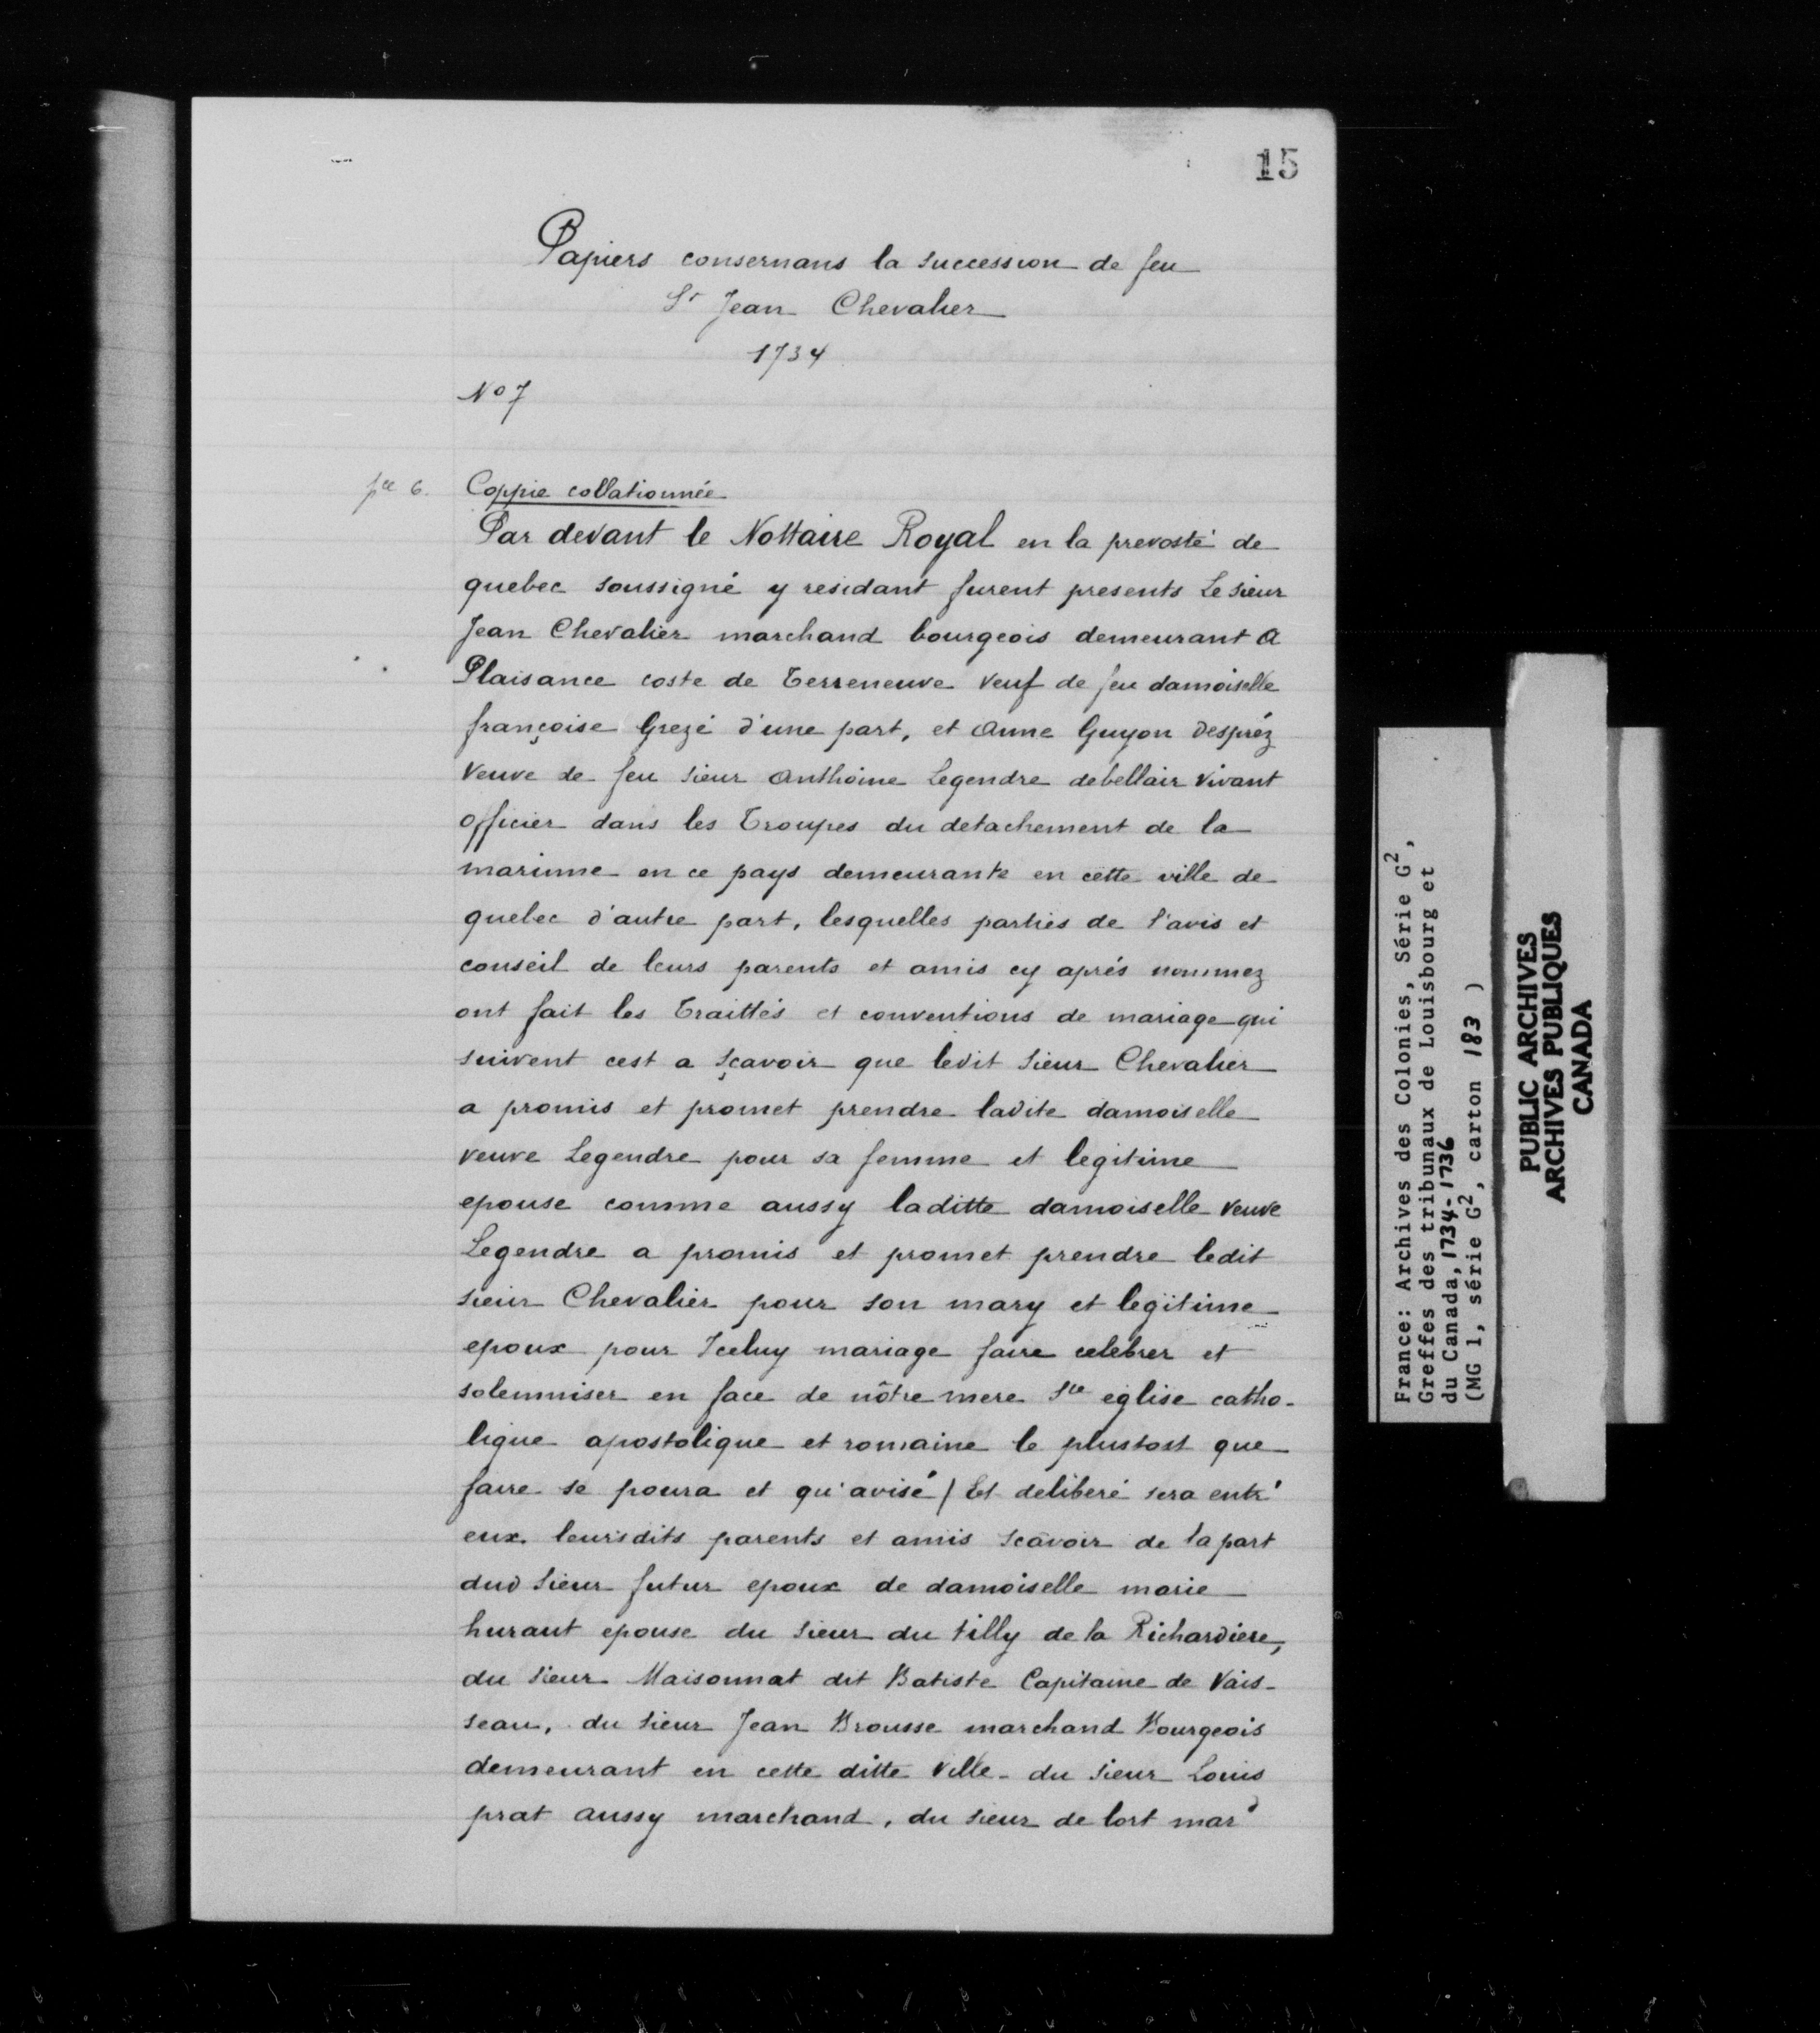 15
Papiers consernans la succession de feu
Sr Jean Chevalier
1734
No 7
pce 6.
Coppie collationnée
Par devant le Nottaire Royal en la prevosté de
quebec soussigné y residant furent presents Le sieur
Jean Chevalier marchand bourgeois demeurant a
Plaisance coste de Terreneuve veuf de feu damoiselle
françoise Grezé d'une part, et Anne Guyon Despréz
veuve de feu sieur Anthoine Legendre debellair vivant
officier dans les Troupes du detachement de la
marinne en ce pays demeurante en cette ville de
quebec d'autre part, lesquelles parties de l'avis et
conseil de leurs parents et amis cy aprés nommez
ont fait les Traittés et conventions de mariage qui
suivent cest a sçavoir que ledit sieur Chevalier
a promis et promet prendre ladite damoiselle
veuve Legendre pour sa femme et legitime
epouse comme aussy laditte damoiselle veuve
Legendre a promis et promet prendre ledit
sieur Chevalier pour son mary et legitime
epoux pour Iceluy mariage faire celebrer et
solemniser en face de nôtre mere Ste eglise catho-
lique apostolique et romaine le plustost que
faire se poura et qu'avisé / Et deliberé sera entr'
eux leursdits parents et amis scavoir de la part
dud sieur futur epoux de damoiselle marie
huraut epouse du sieur du tilly de la Richardiere,
du sieur Maisonnat dit Batiste Capitaine de vais-
seau, du sieur Jean Brousse marchand Bourgeois
demeurant en cette ditte ville - du sieur Louis
prat aussy marchand, du sieur de lort mar
France: Archives des Colonies, Série G²,
Greffes des tribunaux de Louisbourg et
du Canada, 1734-1736
(MG 1, série G², carton 183 )
PUBLIC ARCHIVES
ARCHIVES PUBLIQUES
CANADA